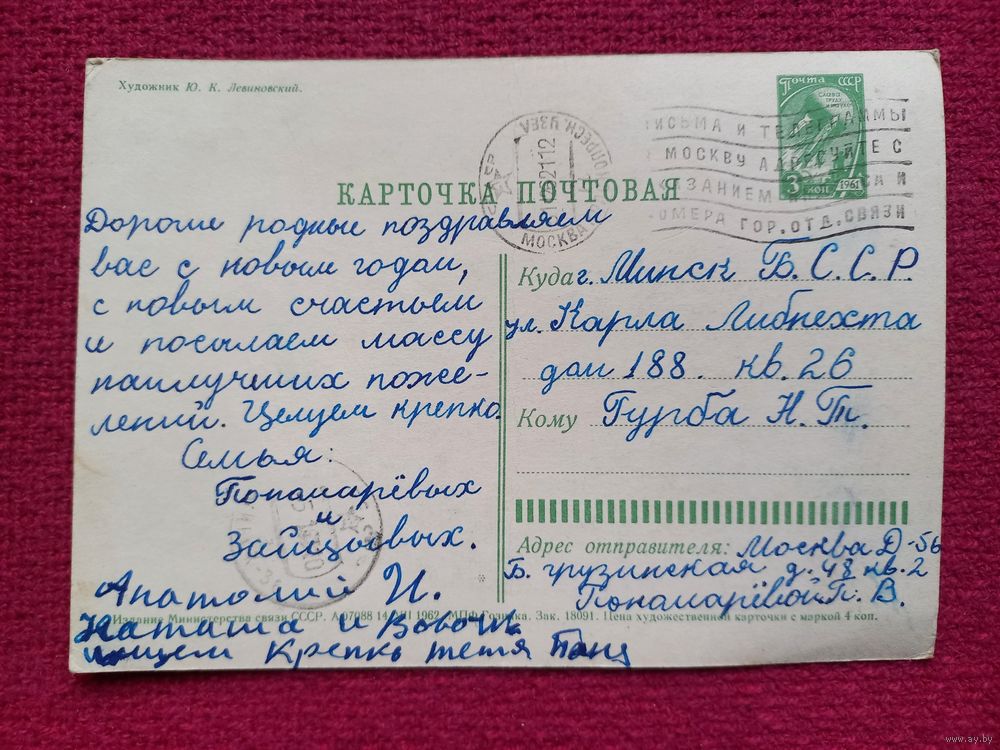 Художник Ю. К. Левиновский.
Почта СССР
СЛАВА ТРУДУ
3 коп 1961
ПИСЬМА И ТЕЛЕГРАММЫ
МОСКВУ АДРЕСУЙТЕ С
НОМЕРА ГОР. ОТД. СВЯЗИ
МОСКВА
КАРТОЧКА ПОЧТОВАЯ
Дорогие родные поздравляем
вас с новым годом,
с новым счастьем
и посылаем массу
наилучших поже-
лений. Целуем крепко.
Семья:
Понамарёвых
и
Зайцевых.
Анатолий И.
Наташа и Вовочк
целуем крепко тетя
Куда г. Минск Б. С. С. Р.
ул. Карла Либнехта
дом 188. кв. 26
Кому Гурба Н. Гт.
Адрес отправителя: Москва Д-56
Б. грузинская д. 48 кв. 2
Понамарёвой П. В.
Издание Министерства связи СССР. А07088 14 VIII 1962. МПФ Гознака. Зак. 18091. Цена художественной карточки с маркой 4 коп.
www.ay.by